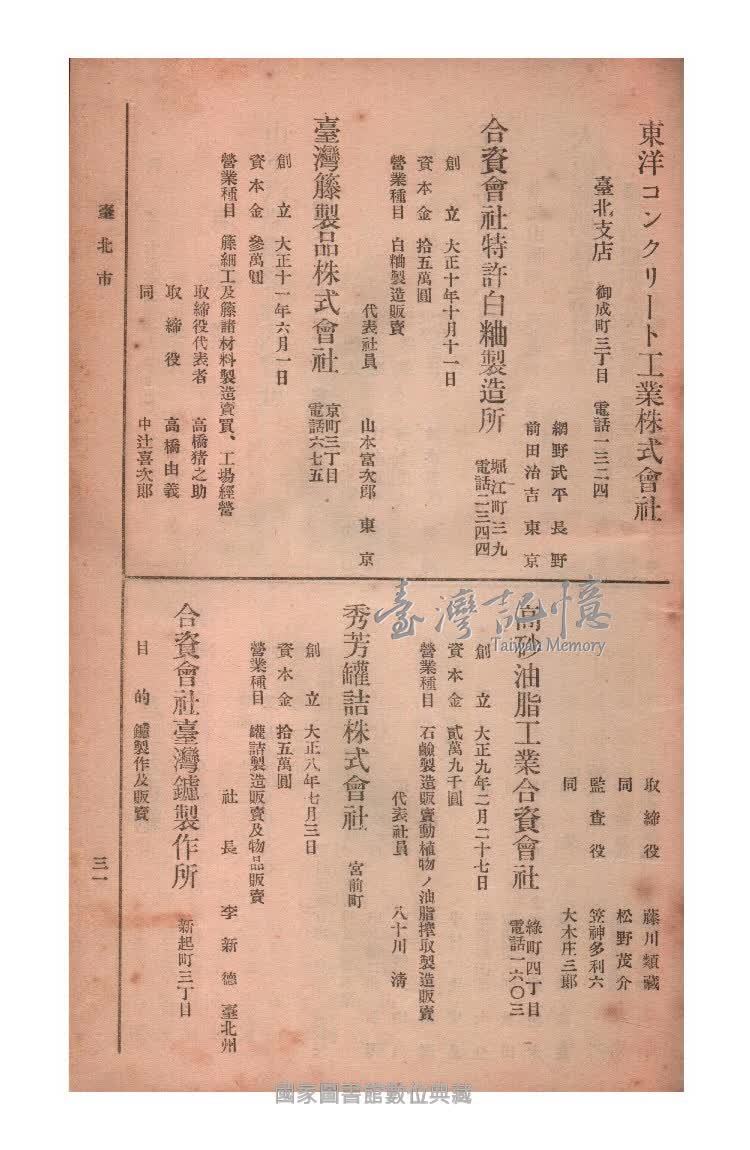 東洋コンクリート工業株式會社
臺北支店 御成町三丁目 電話一三二四
網野武平 長野
前田治吉 東京
合資會社特許白粬製造所 堀江町三九
電話二三四四
創立 大正十年十月十一日
資本金 拾五萬圓
營業種目 白粬製造販賣
代表社員 山本富次郎 東京
臺灣籐製品株式會社 京町三丁目
電話六七五
創立 大正十一年六月一日
資本金 參萬圓
營業種目 籐細工及籐諸材料製造賣買、工場經營
取締役代表者 高橋猪之助
取締役 高橋由義
同 中辻喜次郎
取締役 藤川類藏
同 松野茂介
監査役 笠神多利六
同 大木庄三郎
高砂油脂工業合資會社 綠町四丁目
電話一六〇三
創立 大正九年二月二十七日
資本金 貳萬九千圓
營業種目 石鹼製造販賣動植物ノ油脂搾取製造販賣
代表社員 八十川淸
秀芳罐詰株式會社 宮前町
創立 大正八年七月三日
資本金 拾五萬圓
營業種目 罐詰製造販賣及物品販賣
社長 李新德 臺北州
合資會社臺灣鑢製作所 新起町三丁目
目的 鑢製作及販賣
臺北市 三一
臺灣記憶
Taiwan Memory
國家圖書館數位典藏